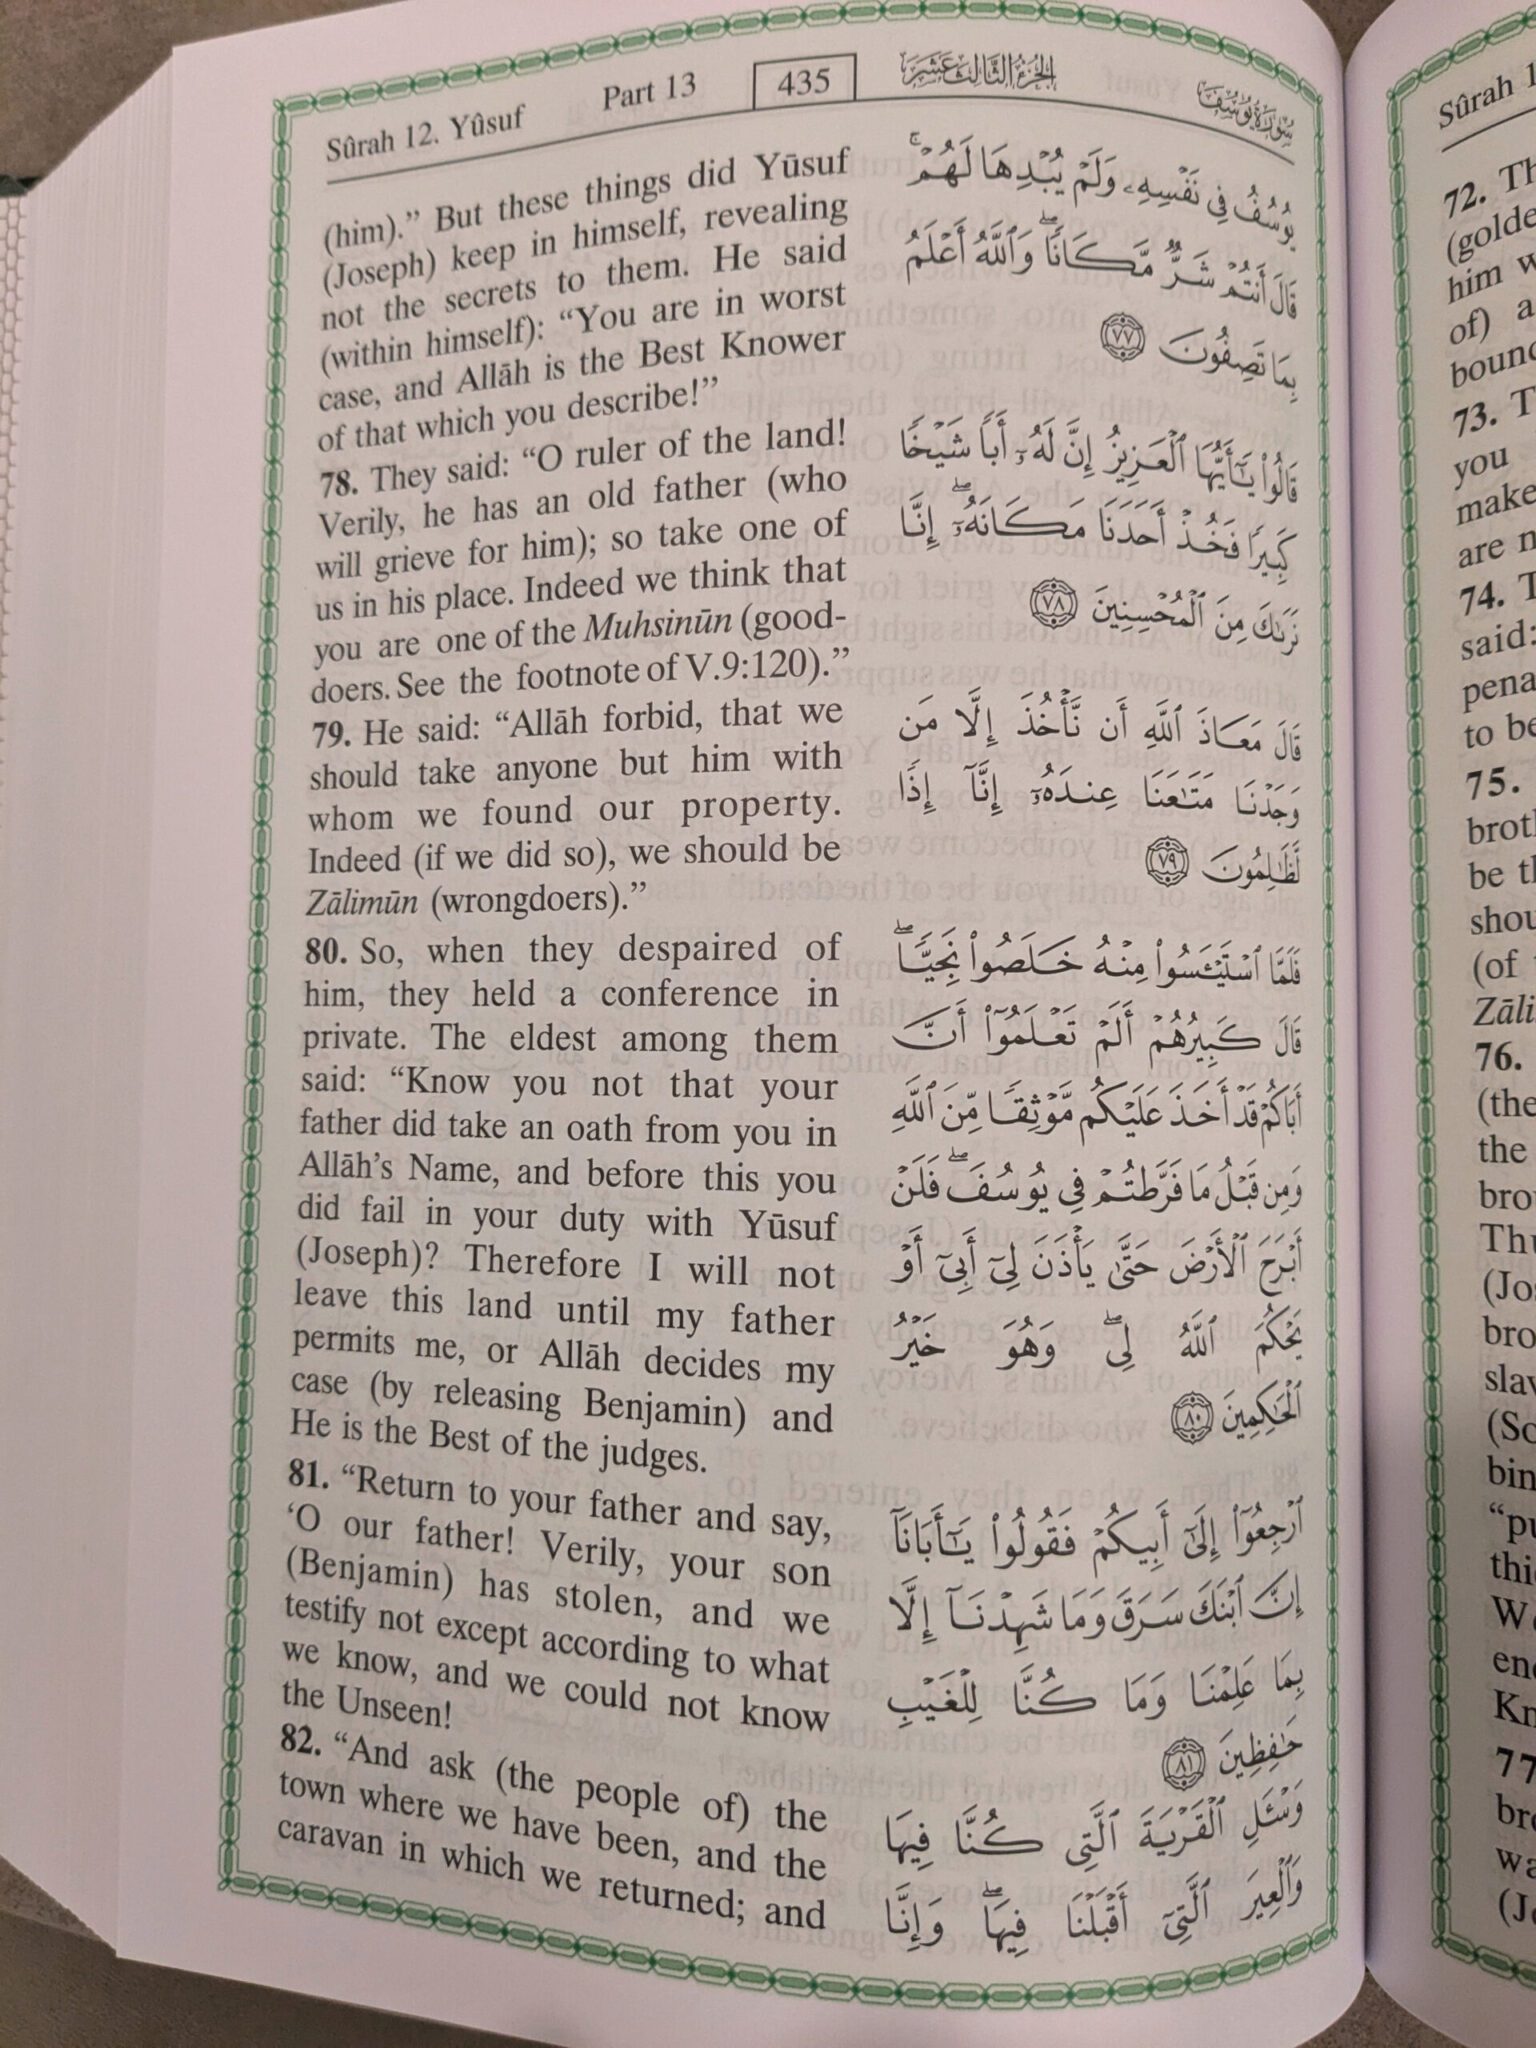 Sûrah 12. Yûsuf
Part 13
435
الجزء الثالث عشر
سورة يوسف
(him)." But these things did Yūsuf
(Joseph) keep in himself, revealing
not the secrets to them. He said
(within himself): "You are in worst
case, and Allāh is the Best Knower
of that which you describe!"
78. They said: "O ruler of the land!
Verily, he has an old father (who
will grieve for him); so take one of
us in his place. Indeed we think that
you are one of the Muhsinūn (good-
doers. See the footnote of V.9:120)."
79. He said: "Allāh forbid, that we
should take anyone but him with
whom we found our property.
Indeed (if we did so), we should be
Zālimūn (wrongdoers)."
80. So, when they despaired of
him, they held a conference in
private. The eldest among them
said: "Know you not that your
father did take an oath from you in
Allāh's Name, and before this you
did fail in your duty with Yūsuf
(Joseph)? Therefore I will not
leave this land until my father
permits me, or Allāh decides my
case (by releasing Benjamin) and
He is the Best of the judges.
81. "Return to your father and say,
'O our father! Verily, your son
(Benjamin) has stolen, and we
testify not except according to what
we know, and we could not know
the Unseen!
82. "And ask (the people of) the
town where we have been, and the
caravan in which we returned; and
يُوسُفُ فِي نَفْسِهِۦ وَلَمْ يُبْدِهَا لَهُمْۚ
قَالَ أَنتُمْ شَرٌّ مَّكَانًاۖ وَٱللَّهُ أَعْلَمُ
بِمَا تَصِفُونَ ٧٧
قَالُوا۟ يَـٰٓأَيُّهَا ٱلْعَزِيزُ إِنَّ لَهُۥٓ أَبًا شَيْخًا
كَبِيرًا فَخُذْ أَحَدَنَا مَكَانَهُۥٓۖ إِنَّا
نَرَىٰكَ مِنَ ٱلْمُحْسِنِينَ ٧٨
قَالَ مَعَاذَ ٱللَّهِ أَن نَّأْخُذَ إِلَّا مَن
وَجَدْنَا مَتَـٰعَنَا عِندَهُۥٓ إِنَّآ إِذًا
لَّظَـٰلِمُونَ ٧٩
فَلَمَّا ٱسْتَيْـَٔسُوا۟ مِنْهُ خَلَصُوا۟ نَجِيًّاۖ
قَالَ كَبِيرُهُمْ أَلَمْ تَعْلَمُوٓا۟ أَنَّ
أَبَاكُمْ قَدْ أَخَذَ عَلَيْكُم مَّوْثِقًا مِّنَ ٱللَّهِ
وَمِن قَبْلُ مَا فَرَّطتُمْ فِي يُوسُفَۖ فَلَنْ
أَبْرَحَ ٱلْأَرْضَ حَتَّىٰ يَأْذَنَ لِىٓ أَبِىٓ أَوْ
يَحْكُمَ ٱللَّهُ لِىۖ وَهُوَ خَيْرُ
ٱلْحَـٰكِمِينَ ٨٠
ٱرْجِعُوٓا۟ إِلَىٰٓ أَبِيكُمْ فَقُولُوا۟ يَـٰٓأَبَانَآ
إِنَّ ٱبْنَكَ سَرَقَ وَمَا شَهِدْنَآ إِلَّا
بِمَا عَلِمْنَا وَمَا كُنَّا لِلْغَيْبِ
حَـٰفِظِينَ ٨١
وَسْـَٔلِ ٱلْقَرْيَةَ ٱلَّتِى كُنَّا فِيهَا
وَٱلْعِيرَ ٱلَّتِىٓ أَقْبَلْنَا فِيهَاۖ وَإِنَّا
Sûrah 1
72. Th
(golde
him w
of) a
bound
73. T
you
make
are n
74. T
said:
pena
to be
75.
broth
be th
shou
(of
Zāli
76.
(the
the
bro
Thu
(Jos
bro
slav
(So
bin
"pu
thi
We
end
Kn
77
bro
wa
(Jo